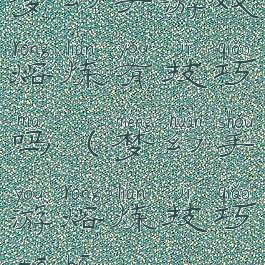 梦幻手游戏
róng liàn yǒu jì qiǎo
熔炼有技巧
ma mèng huàn shǒu
吗)(梦幻手
yóu róng liàn jì qiǎo
游熔炼技巧